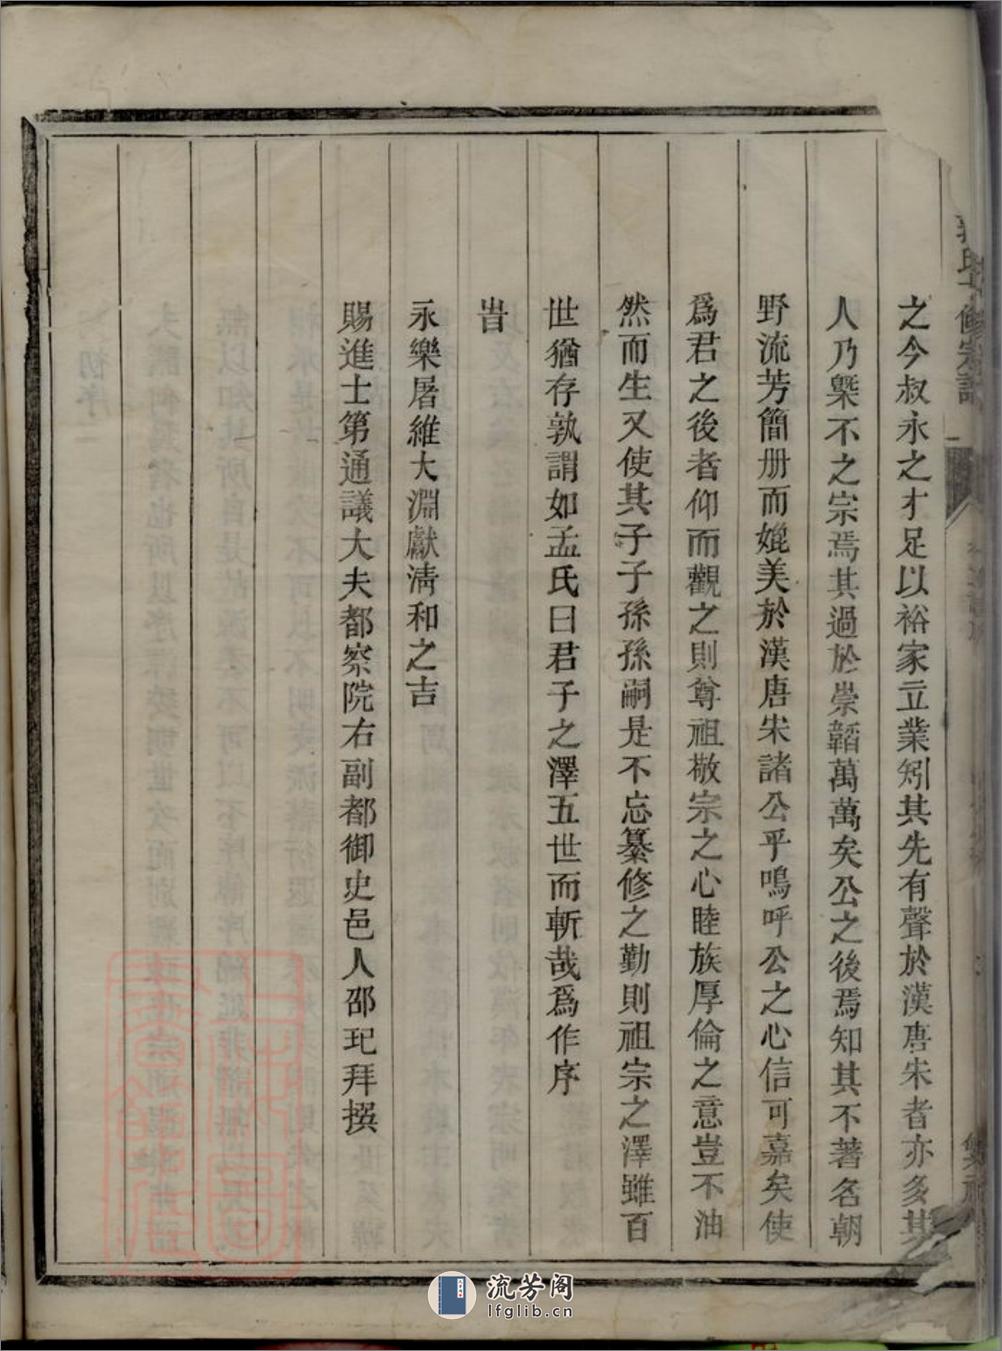 之今叔永之才足以裕家立業矧其先有聲於漢唐宋者亦多其
人乃槩不之宗焉其過於崇韜萬萬矣公之後焉知其不著名朝
野流芳簡册而媲美於漢唐宋諸公乎嗚呼公之心信可嘉矣使
爲君之後者仰而觀之則尊祖敬宗之心睦族厚倫之意豈不油
然而生又使其子子孫孫嗣是不忘纂修之勤則祖宗之澤雖百
世猶存孰謂如孟氏曰君子之澤五世而斬哉爲作序
旹
永樂屠維大淵獻淸和之吉
賜進士第通議大夫都察院右副都御史邑人邵玘拜撰
流芳阁
lfglib.cn